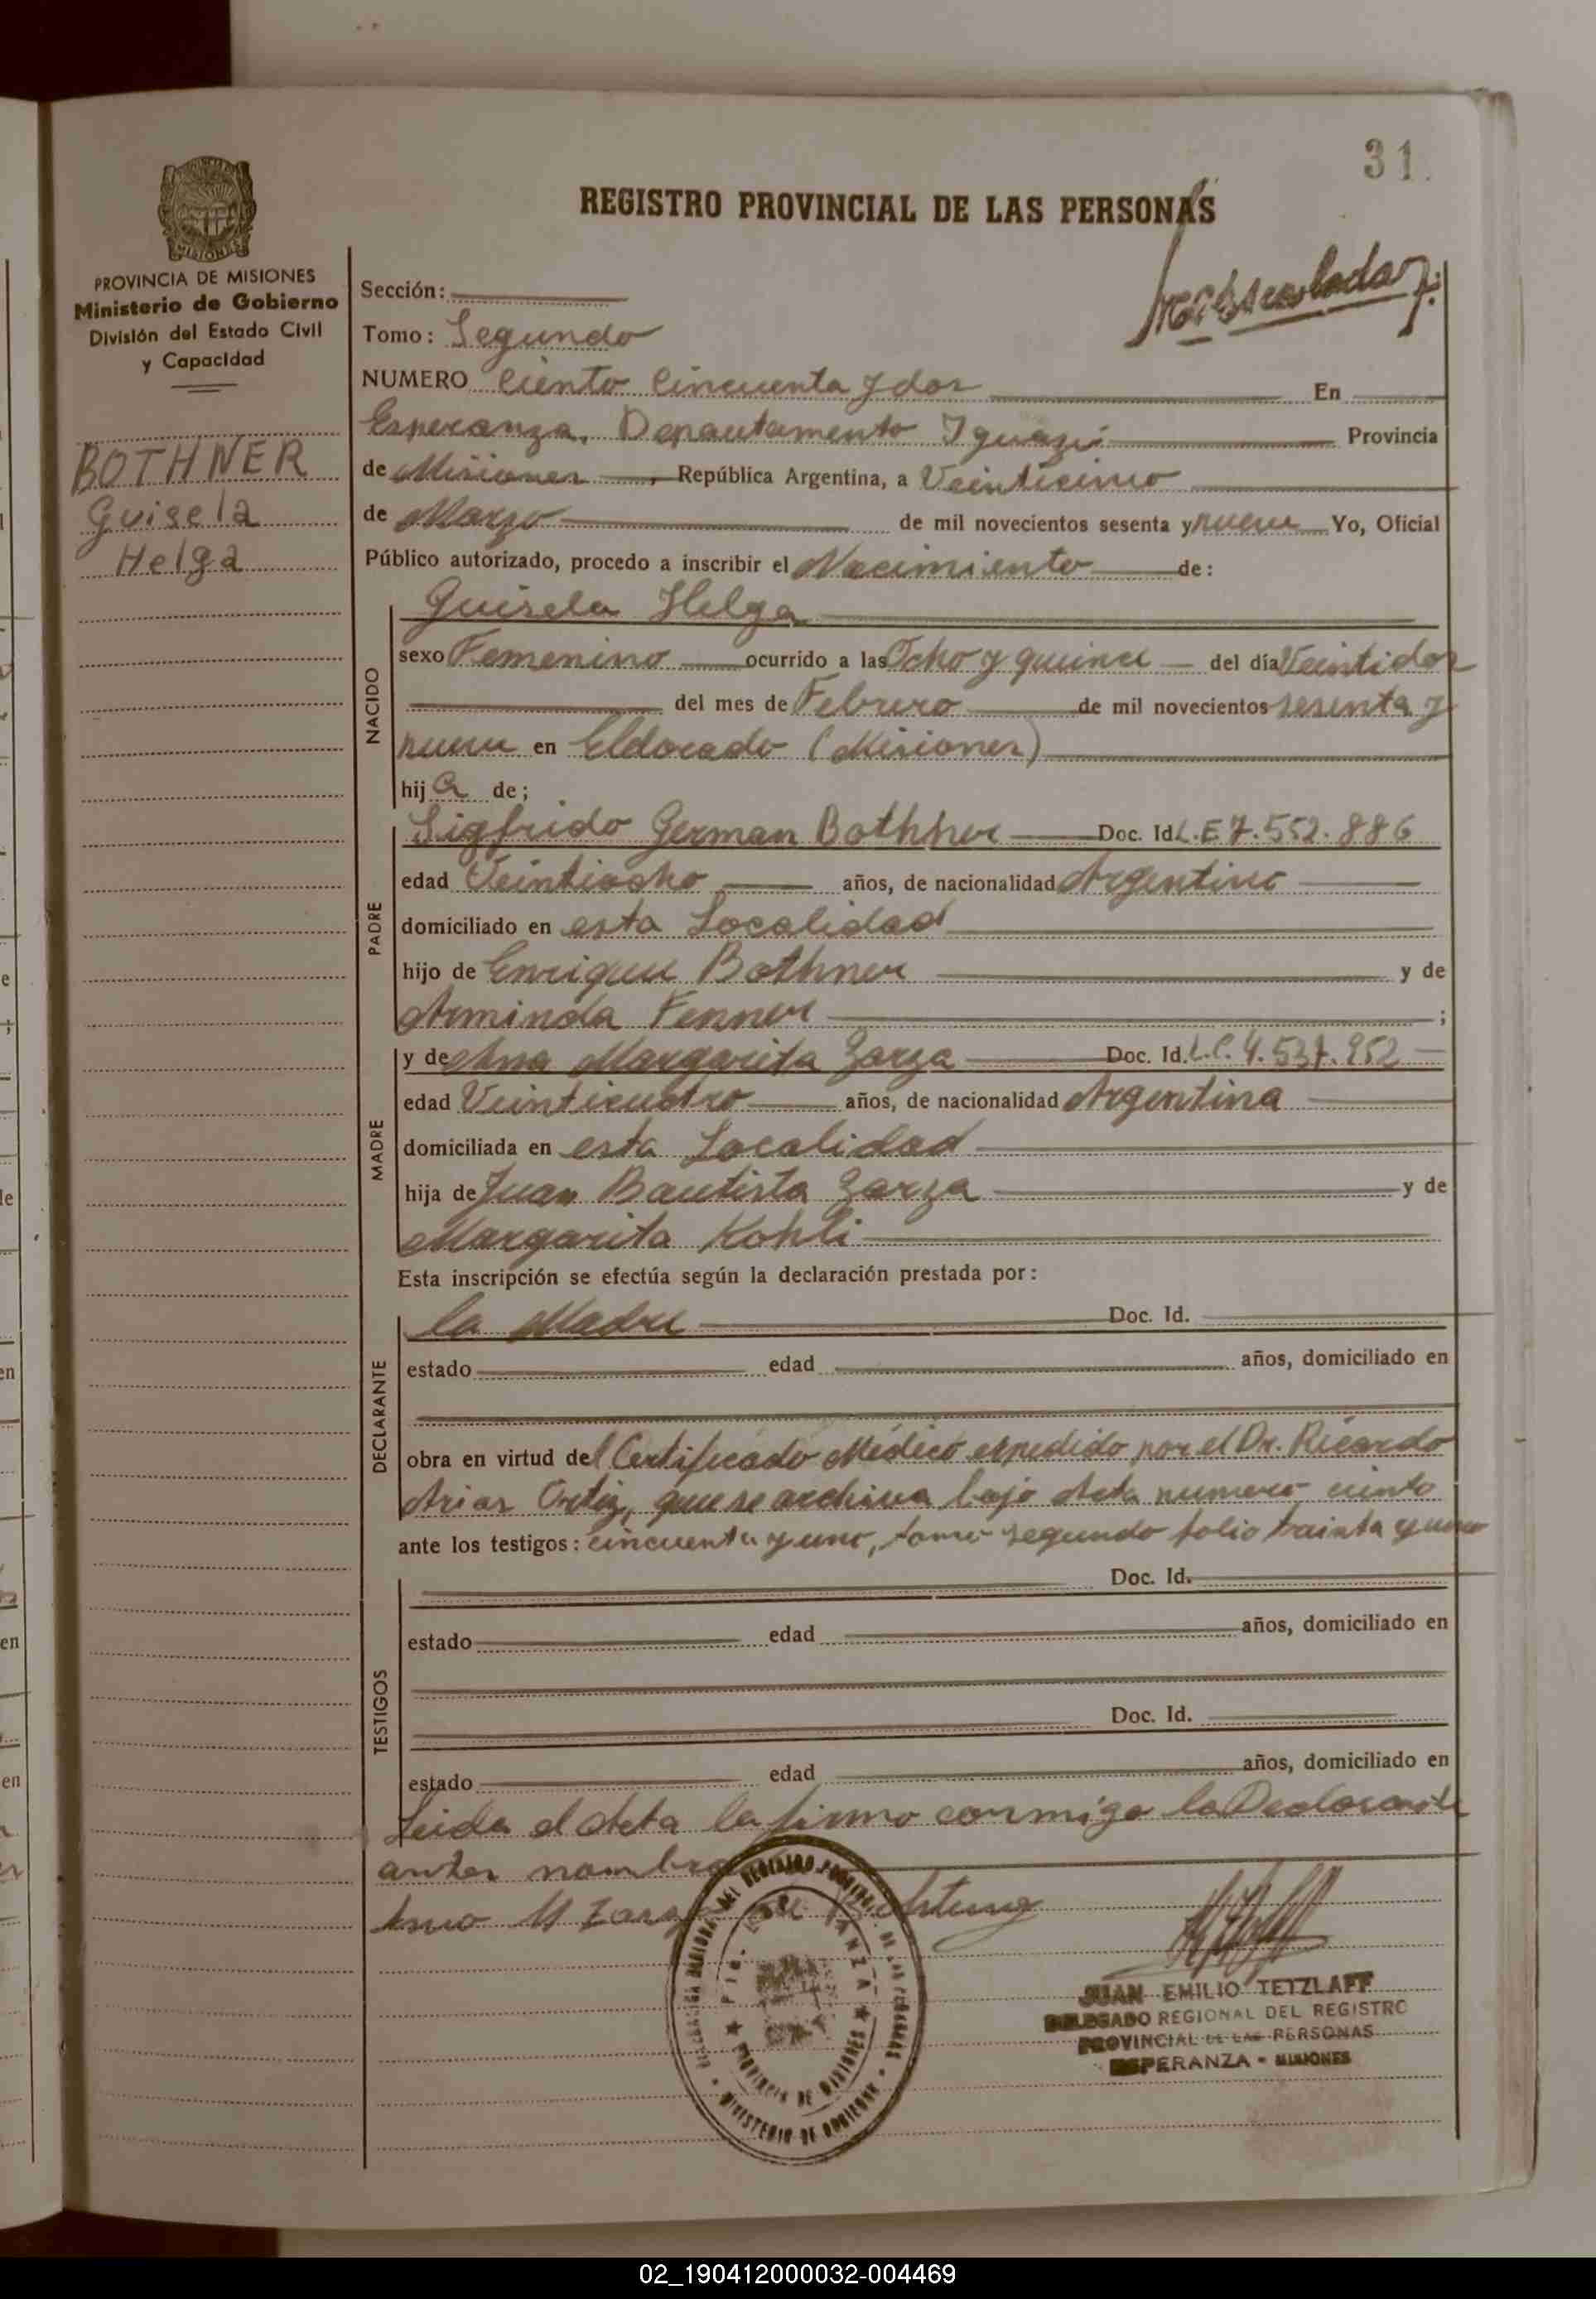 31.
REGISTRO PROVINCIAL DE LAS PERSONAS
MISIONES
PROVINCIA DE MISIONES
Ministerio de Gobierno
División del Estado Civil
y Capacidad
BOTHNER
Guisela
Helga
Sección:
Tomo: Segundo
NUMERO Ciento Cincuenta y dos En
Esperanza, Departamento Iguazú Provincia
de Misiones, República Argentina, a Veinticinco
de Marzo de mil novecientos sesenta y nueve Yo, Oficial
Público autorizado, procedo a inscribir el Nacimiento de:
NACIDO
Guisela Helga
sexo Femenino ocurrido a las Ocho y quince del día Veintidos
del mes de Febrero de mil novecientos sesenta y
nueve en Eldorado (Misiones)
hija de;
PADRE
Sigfrido German Bothner Doc. Id. L.E 7.552.886
edad Veintiocho años, de nacionalidad Argentino
domiciliado en esta Localidad
hijo de Enrique Bothner y de
Arminda Fenner ;
MADRE
y de Ana Margarita Zarza Doc. Id. L.C. 4.537.952
edad Veinticuatro años, de nacionalidad Argentina
domiciliada en esta Localidad
hija de Juan Bautista Zarza y de
Margarita Kohli
Esta inscripción se efectúa según la declaración prestada por:
DECLARANTE
la Madre Doc. Id.
estado edad años, domiciliado en
obra en virtud del Certificado Médico expedido por el Dr. Ricardo
Arias Ortiz, que se archiva bajo Acta numero ciento
ante los testigos: cincuenta y uno, tomo segundo folio treinta y uno
TESTIGOS
Doc. Id.
estado edad años, domiciliado en
Doc. Id.
estado edad años, domiciliado en
Leida el Acta la firma conmigo la Declarante
antes nombrada
JUAN EMILIO TETZLAFF
DELEGADO REGIONAL DEL REGISTRO
PROVINCIAL DE LAS PERSONAS
ESPERANZA - MISIONES
PROVINCIA DE MISIONES
MINISTERIO DE GOBIERNO
02_190412000032-004469